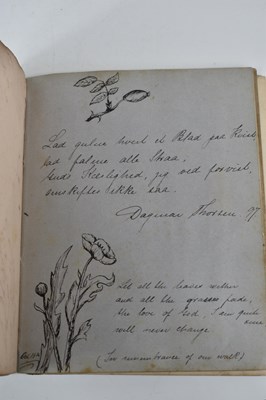 Lad gulne hvert et Blad paa Kvist
lad falme alle Straa,
Guds Kærlighed, jeg ved forvist,
omskiftes ikke saa.
Dagmar Thorsen
Let all the leaves wither
and all the grasses fade,
the love of God, I am quite
sure
will never change
(In remembrance of our walk)